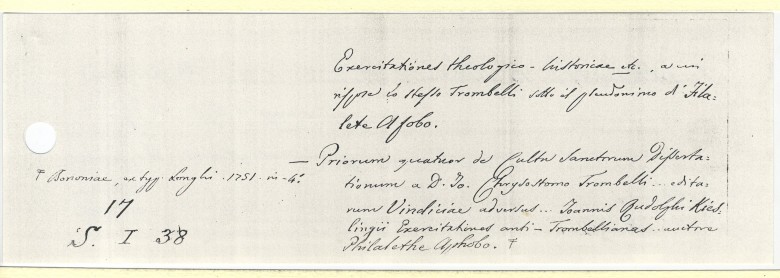 Exercitationes theologico-historicae etc., a cui
rispose lo stesso Trombelli sotto il pseudonimo di Fila=
lete Afobo.
— Priorum quatuor de Cultu Sanctorum Disserta=
tionum a D. Jo. Chrysostomo Trombelli... edita=
rum Vindiciae adversus... Joannis Rudolphi Kies=
lingii Exercitationes anti-Trombellianas... auctore
Philalethe Aphobo. ₮
₮ Bononiae, ex typ. Longhi. 1751. in-4.°
17
S. I 38